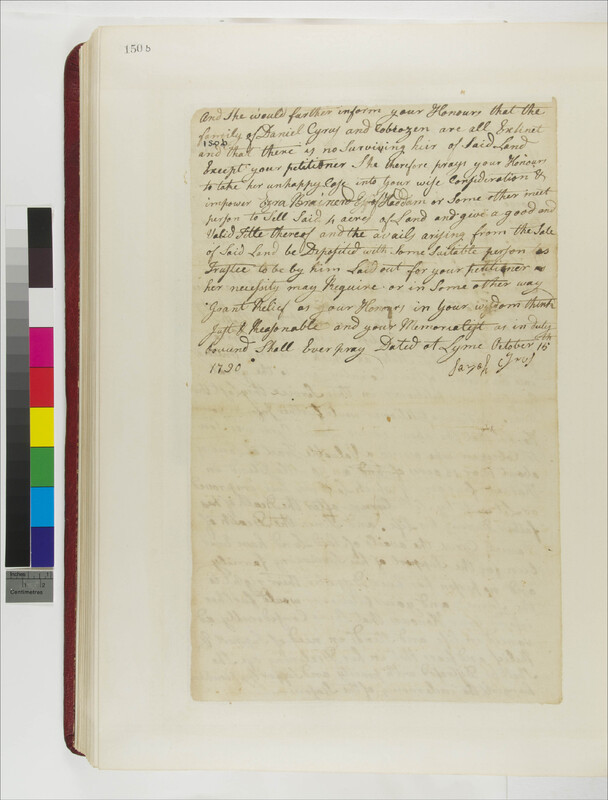 150 b
And She would farther inform your Honours that the
family of Daniel Cyrus and are all Extinct
150b
and that there is no Surviving heir of Said Land
Except your petitioner She therefore prays your Honours
to take her unhappy Case into your wise Consideration &
impower Ezra Brainerd Esq of Haddam or Some other meet
person to Sell Said 4 acres of Land and give a good and
Valid Title thereof and the avails arising from the Sale
of Said Land be Deposited with Some Suitable person as
Trustee to be by him Laid out for your petitioner as
her necessity may Require or in Some other way
Grant Relief as your Honors in your wisdom think
Just & Reasonable and your Memorialist as in duty
bound Shall Ever pray Dated at Lyme October 15th
1790 Sarah Cyrus
Inches
1 2
Centimetres